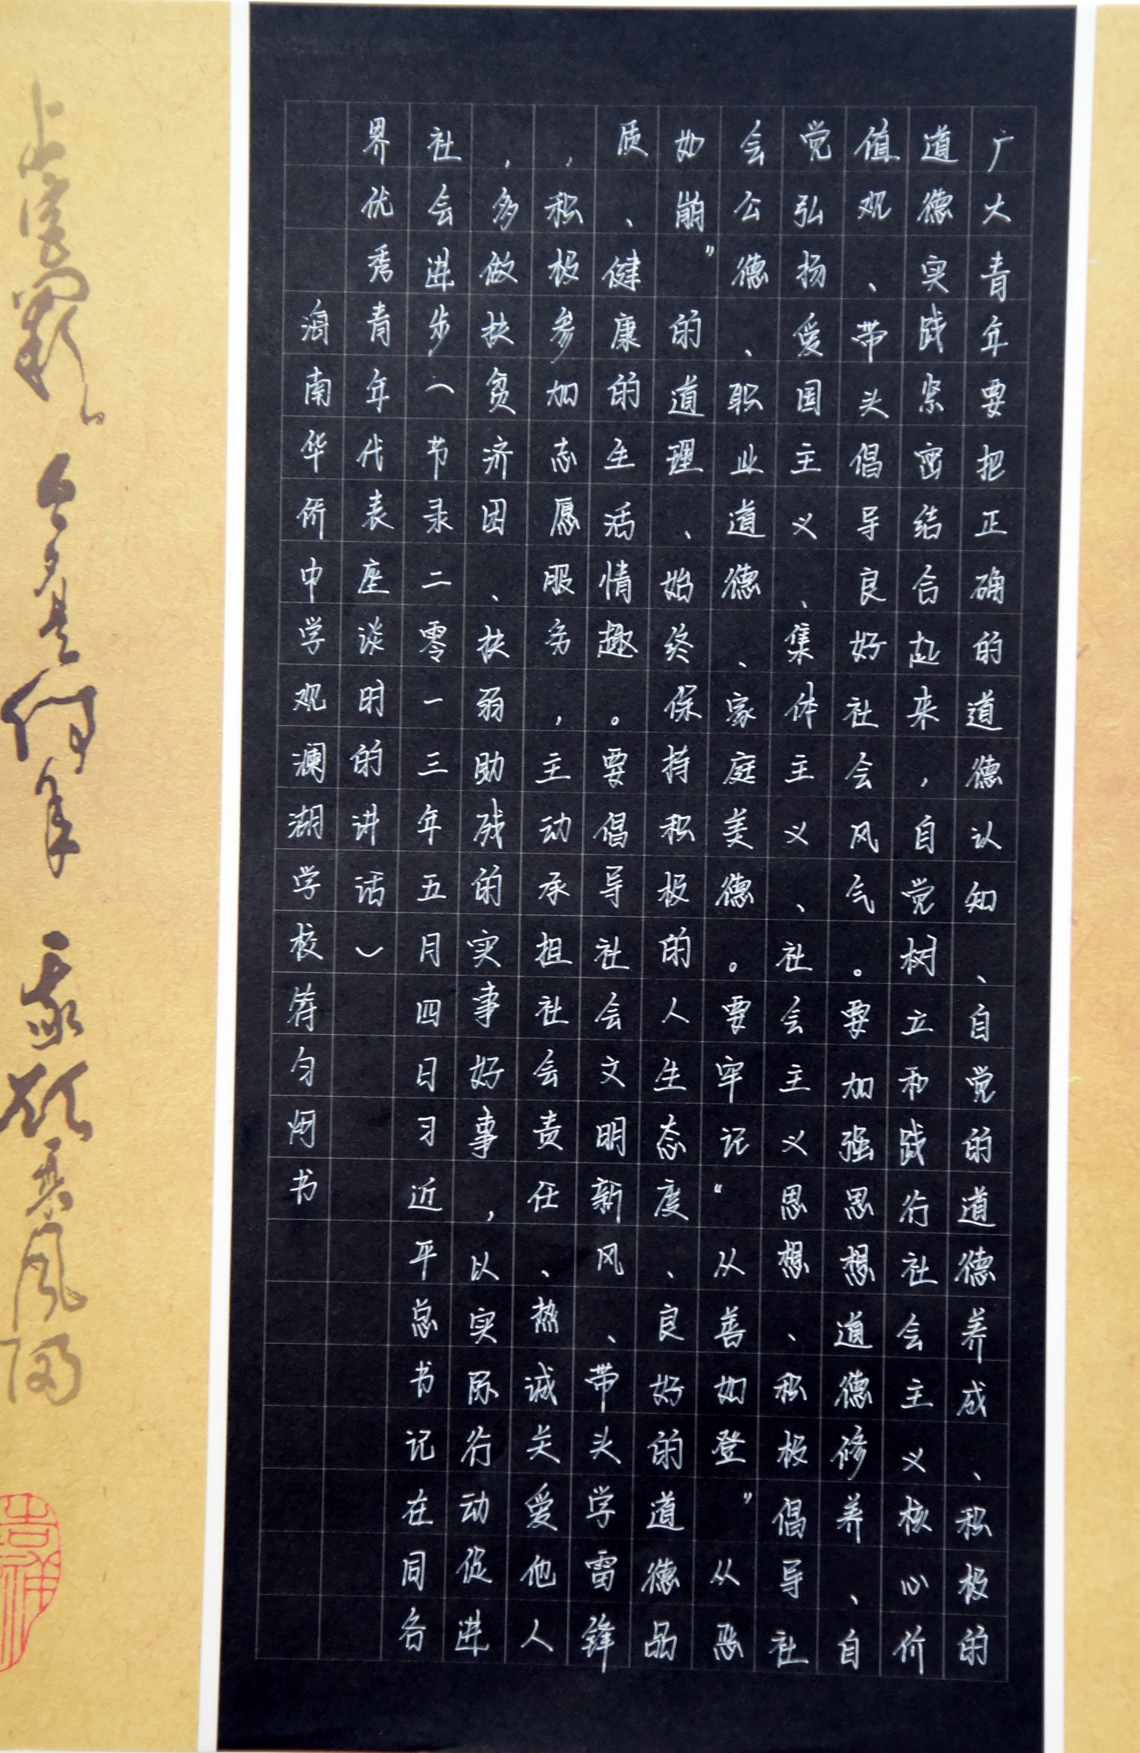 广大青年要把正确的道德认知、自觉的道德养成、积极的
道德实践紧密结合起来，自觉树立和践行社会主义核心价
值观、带头倡导良好社会风气。要加强思想道德修养、自
觉弘扬爱国主义、集体主义、社会主义思想、积极倡导社
会公德、职业道德、家庭美德。要牢记“从善如登”从恶
如崩”的道理、始终保持积极的人生态度、良好的道德品
质、健康的生活情趣。要倡导社会文明新风、带头学雷锋
，积极参加志愿服务，主动承担社会责任、热诚关爱他人
，多做扶贫济困、扶弱助残的实事好事，以实际行动促进
社会进步（节录二零一三年五月四日习近平总书记在同各
界优秀青年代表座谈时的讲话）
海南华侨中学观澜湖学校符匀炳书
今是何年
我欲乘风